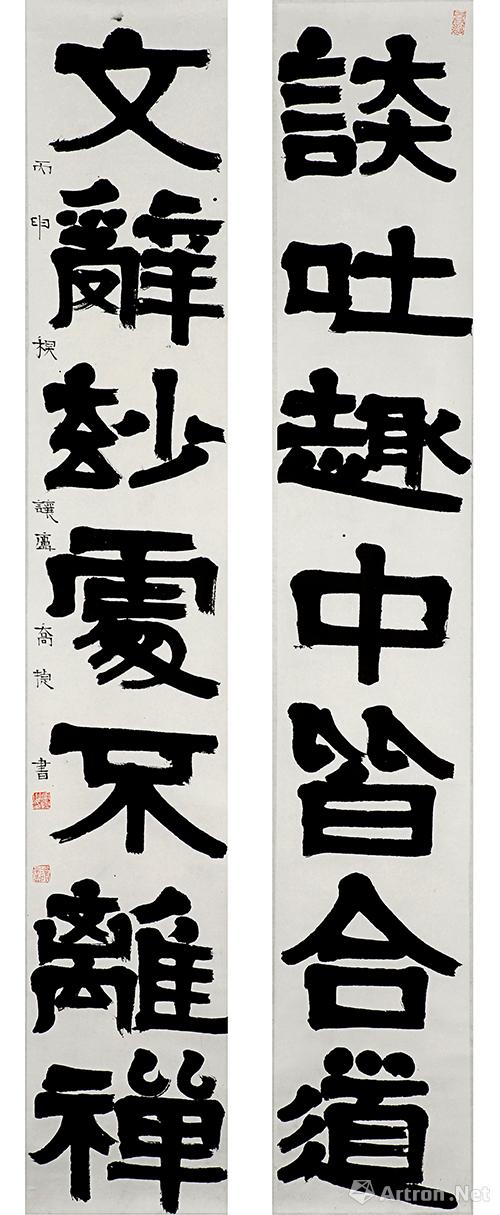 談吐趣中皆合道
文辭玅處不離禪
丙申 讓廬 喬
書
Artron.Net